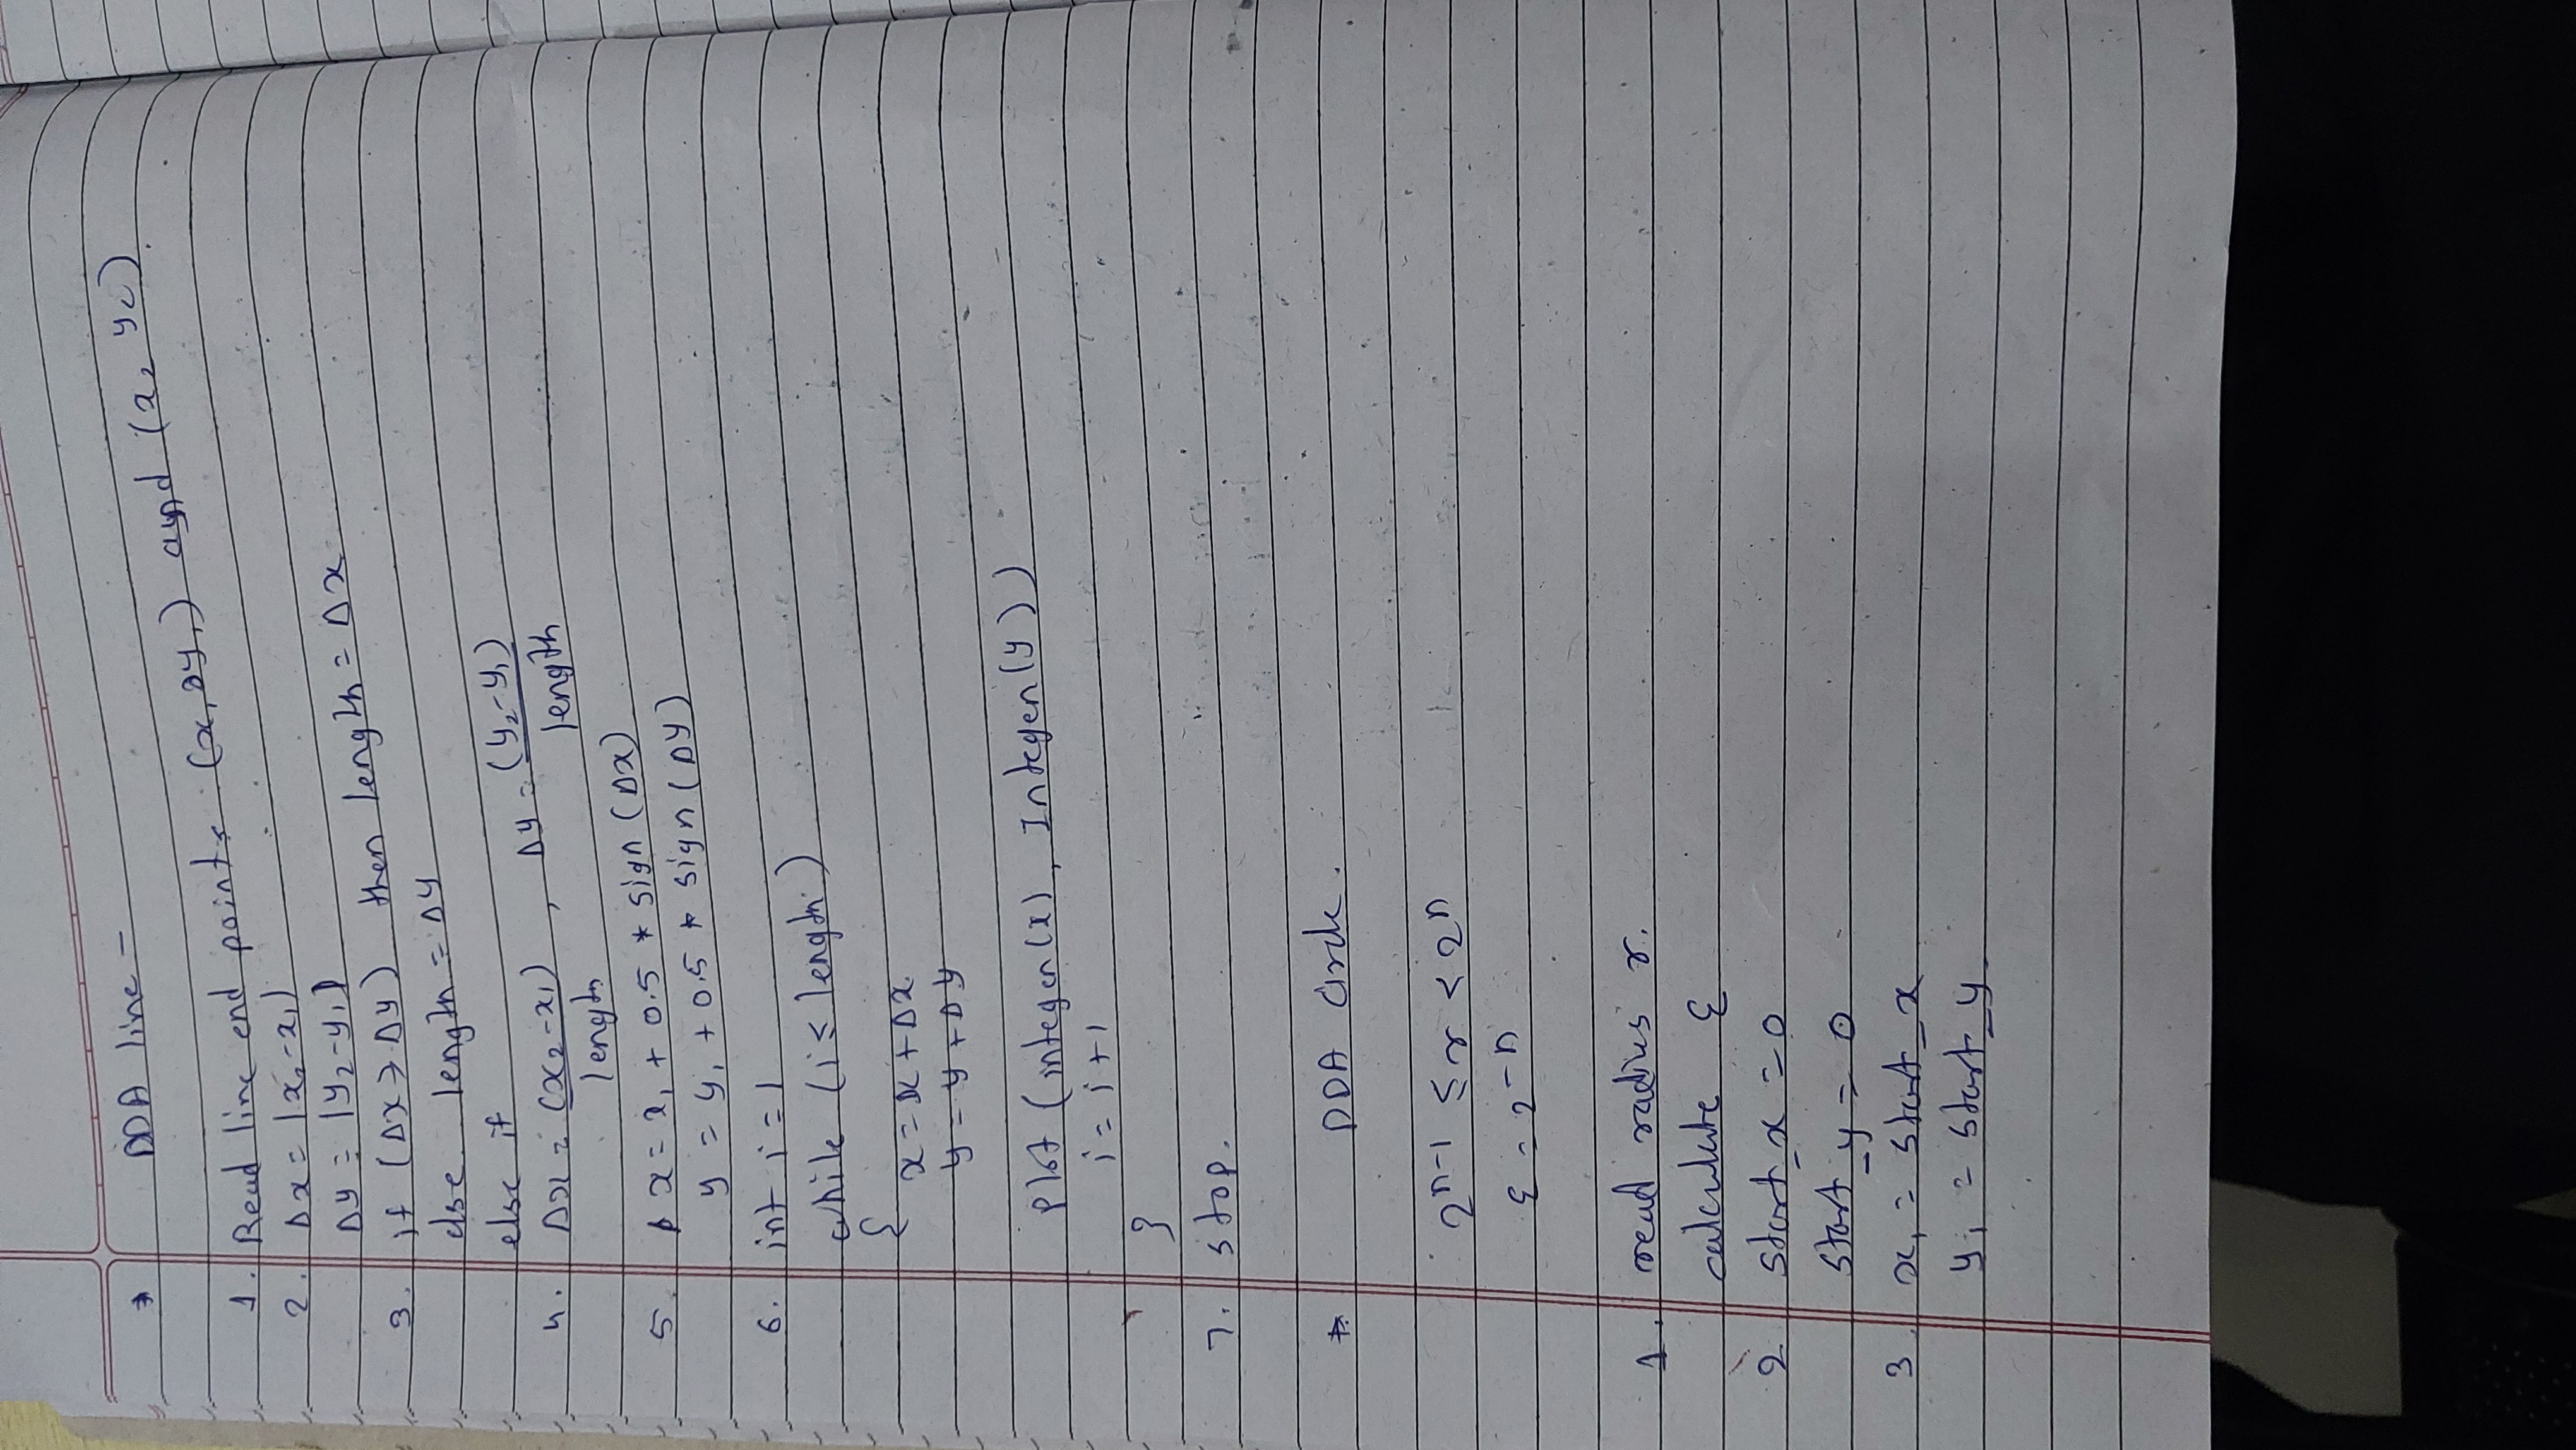 DDA line -
1. Read line end points (x₁, y₁) and (x₂ y₂)
2. Δx = |x₂-x₁|
Δy = |y₂-y₁|
3. if (Δx > Δy) then length = Δx
else length = Δy
else if
4. Δx = (x₂-x₁) / length , Δy = (y₂-y₁) / length
5. x = x₁ + 0.5 * sign (Δx)
y = y₁ + 0.5 * sign (Δy)
6. int i = 1
while (i ≤ length)
{
x = x + Δx
y = y + Δy
Plot (integer(x), Integer(y))
i = i + 1
}
7. stop.
DDA Circle.
2ⁿ⁻¹ ≤ r < 2ⁿ
ε = 2⁻ⁿ
1. read radius r.
calculate ε
2 start_x = 0
start_y = 0
3. x₁ = start_x
y₁ = start_y